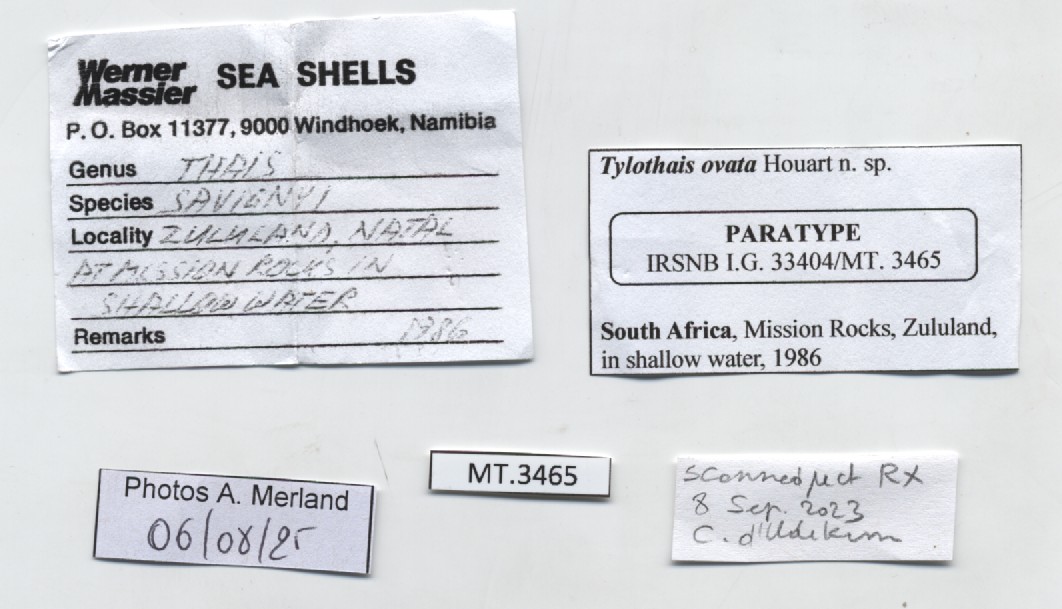 Werner Massier SEA SHELLS
P. O. Box 11377, 9000 Windhoek, Namibia
Genus THAIS
Species SAVIGNYI
Locality ZULULAND, NATAL
AT MISSION ROCKS IN
SHALLOW WATER
Remarks 1986
Tylothais ovata Houart n. sp.
PARATYPE
IRSNB I.G. 33404/MT. 3465
South Africa, Mission Rocks, Zululand,
in shallow water, 1986
Photos A. Merland
06/08/25
MT.3465
RX
8 Sep. 2023
C. d'Udekem